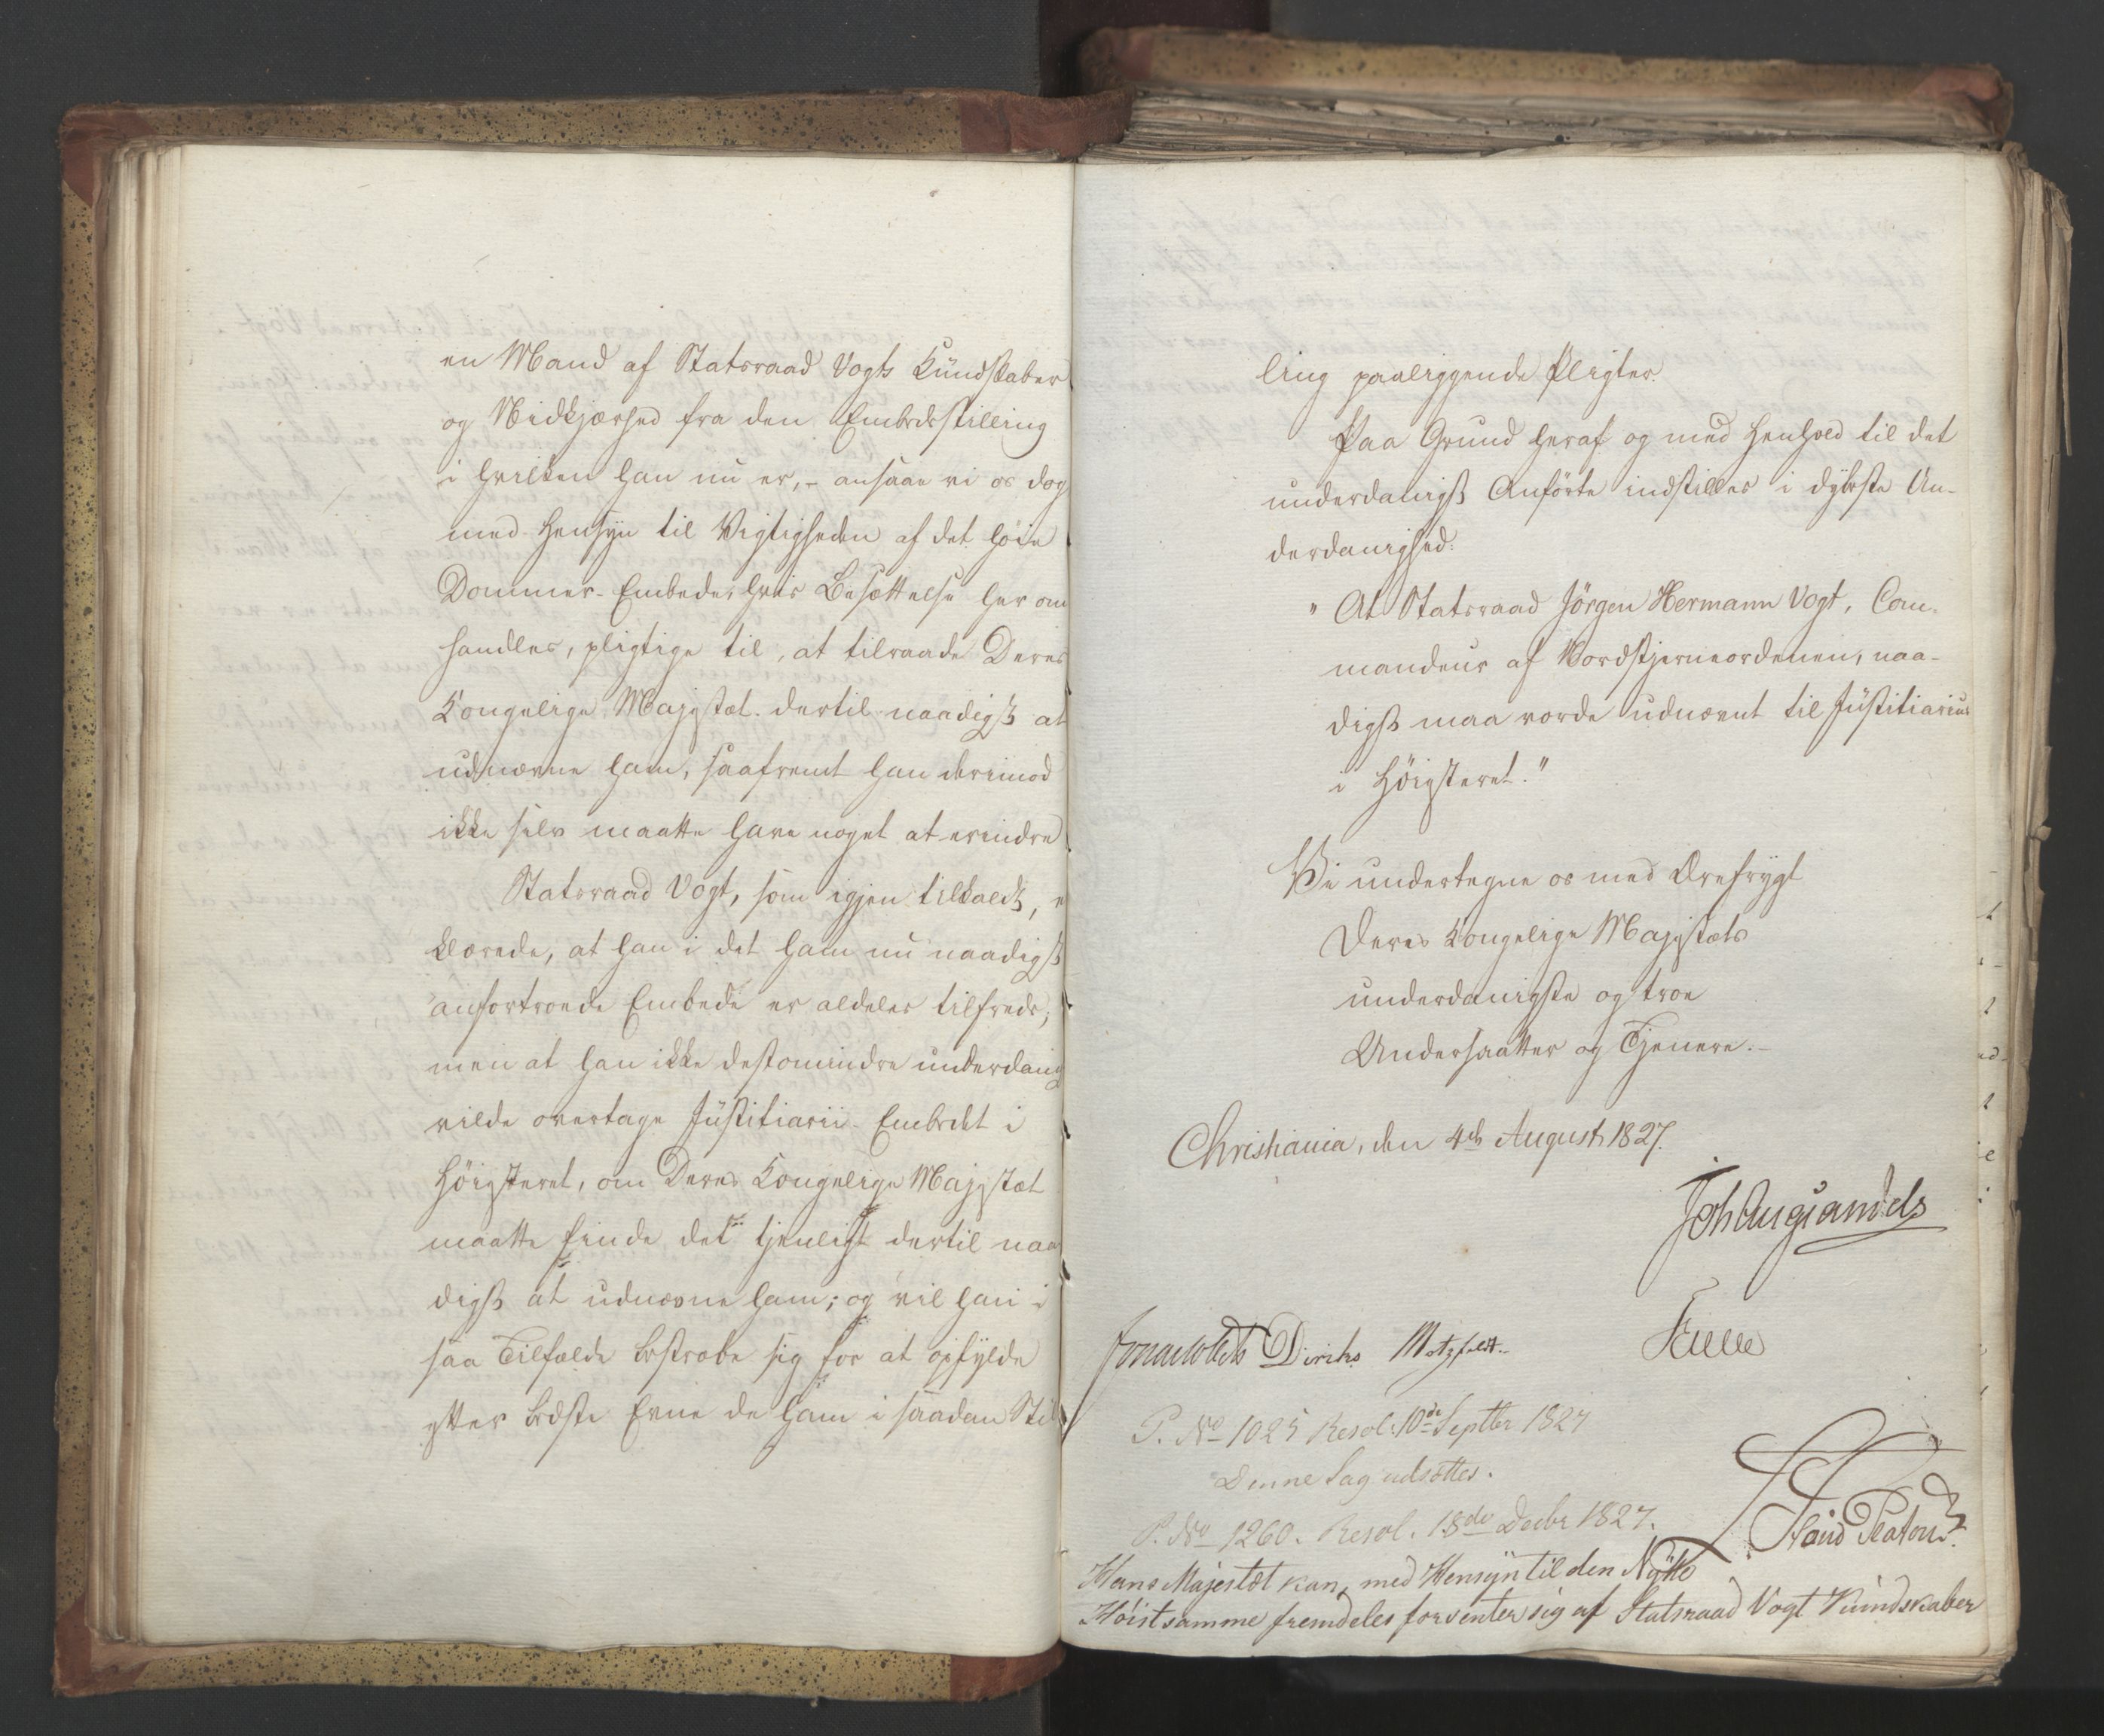 en Mand af Statsraad Vogts Kündskaber
og Nidkjærhed fra den Embedsstilling
i hvilken han nu er, - ansaae vi os dog
med Hensyn til Vigtigheden af det høie
Dommer-Embede, hvis Besættelse her om
handles, pligtige til, at tilraade Deres
Kongelige Majestæt. dertil naadigst at
udnævne ham, saafremt han derimod
ikke selv maatte have noget at erindre
Statsraad Vogt, som igjen tilkaldt, er
klærede, at han i det ham nu naadigst
anfortroede Embede er aldeles tilfreds;
men at han ikke destomindre underdanig
vilde overtage Jüstitiarii-Embedet i
Höiesteret, om Deres Kongelige Majestæt
maatte finde det tjenligt dertil naa
digst at udnævne ham; og vil han i
saa Tilfælde bestræbe sig for at opfylde
ytter bedste Evne de ham i saadan Stil
ling paaliggende Pligter.
Paa Grund heraf og med Henhold til det
underdanigst Anförte indstilles i dybeste Un-
derdanighed:
" At Statsraad Jörgen Hermann Vogt, Com-
mandeur af Nordstjerneordenen, naa-
digst maa vorde udnævnt til Jüstitiarius
i Höiesteret."
Vi undertegne os med Ærefrygt
Deres Kongelige Majestæts
underdanigste og troe
Undersaatter og Tjenere.-
Christiania, den 4de August 1827.
Joh Aug Sandels
Jonas Collett Diriks Motzfeldt Krieg
P. No 1025 Resol. 10de Septbr 1827
Denne Sag udsættes.
P. No 1260. Resol. 18de Decbr 1827.
Hans Majestæt kan, med Hensÿn til den Nÿtte
Höistsamme fremdeles forventer sig af Statsraad Vogt Kundskaber